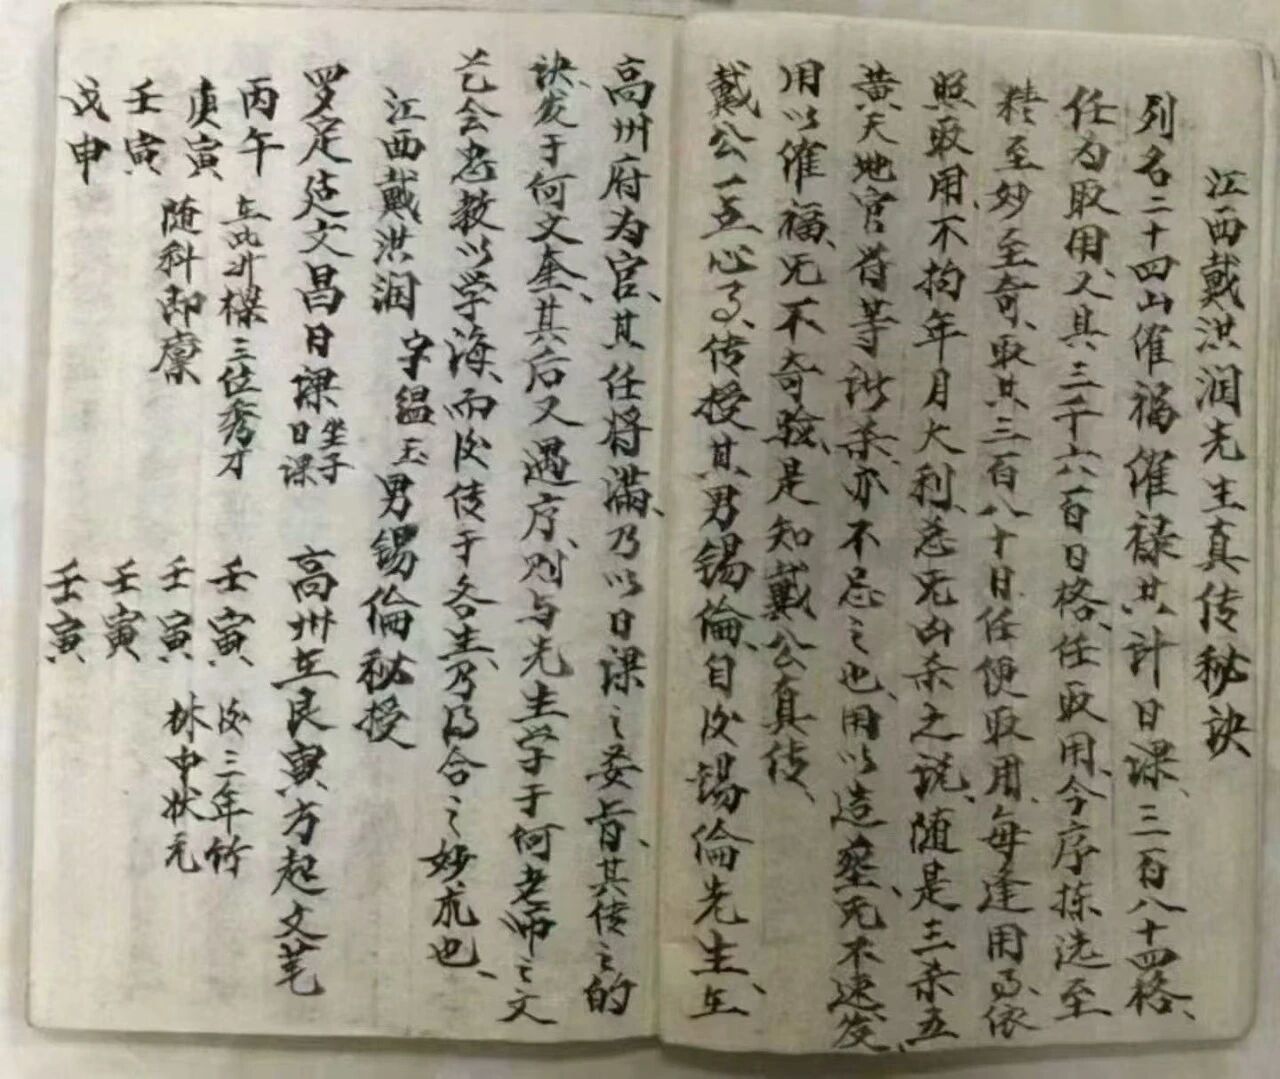 江西戴洪润先生真传秘诀
列名二十四山催福催禄共计日课、三百八十四格、
任为取用、又其三千六百日格、任取用、今序拣选至
精至妙至奇、取其三百八十日、任便取用、每逢用事、依
照取用、不拘年月大利、忌无凶杀之说、随是三杀五
黄天地官符等诸杀、亦不忌之也、用以造葬、无不速发、
用以催福、无不奇验、是知戴公真传、
戴公一生心事、传授其男锡倫、自后锡倫先生、在
高州府为官、其任将满、乃以日课之妾旨、其传之的
诀发于何文奎、其后又遇序、则与先生学于何老师之文
艺会悉教以学海、而后传于各生、乃为合之妙也、
江西戴洪润 字緼玉 男锡倫秘授
罗定廷文昌日课 坐子日课
丙午 在此升樑三位秀才
庚寅 随科即廪
壬寅
戊申
高州在艮寅方起文笔
壬寅 后三年竹
壬寅 林中状元
壬寅
壬寅